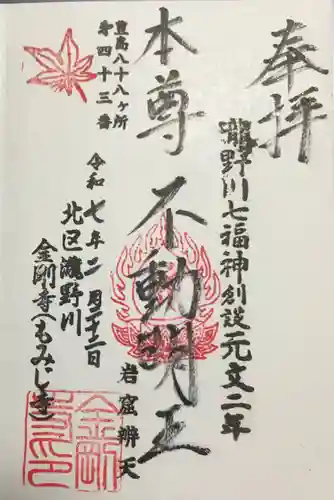 奉拝
瀧野川七福神創設元文二年
本尊 不動明王
岩窟辨天
豊島八十八ヶ所
第四十三番
令和七年二月二十二日
北区瀧野川
金剛寺(もみじ寺)
金剛寺印